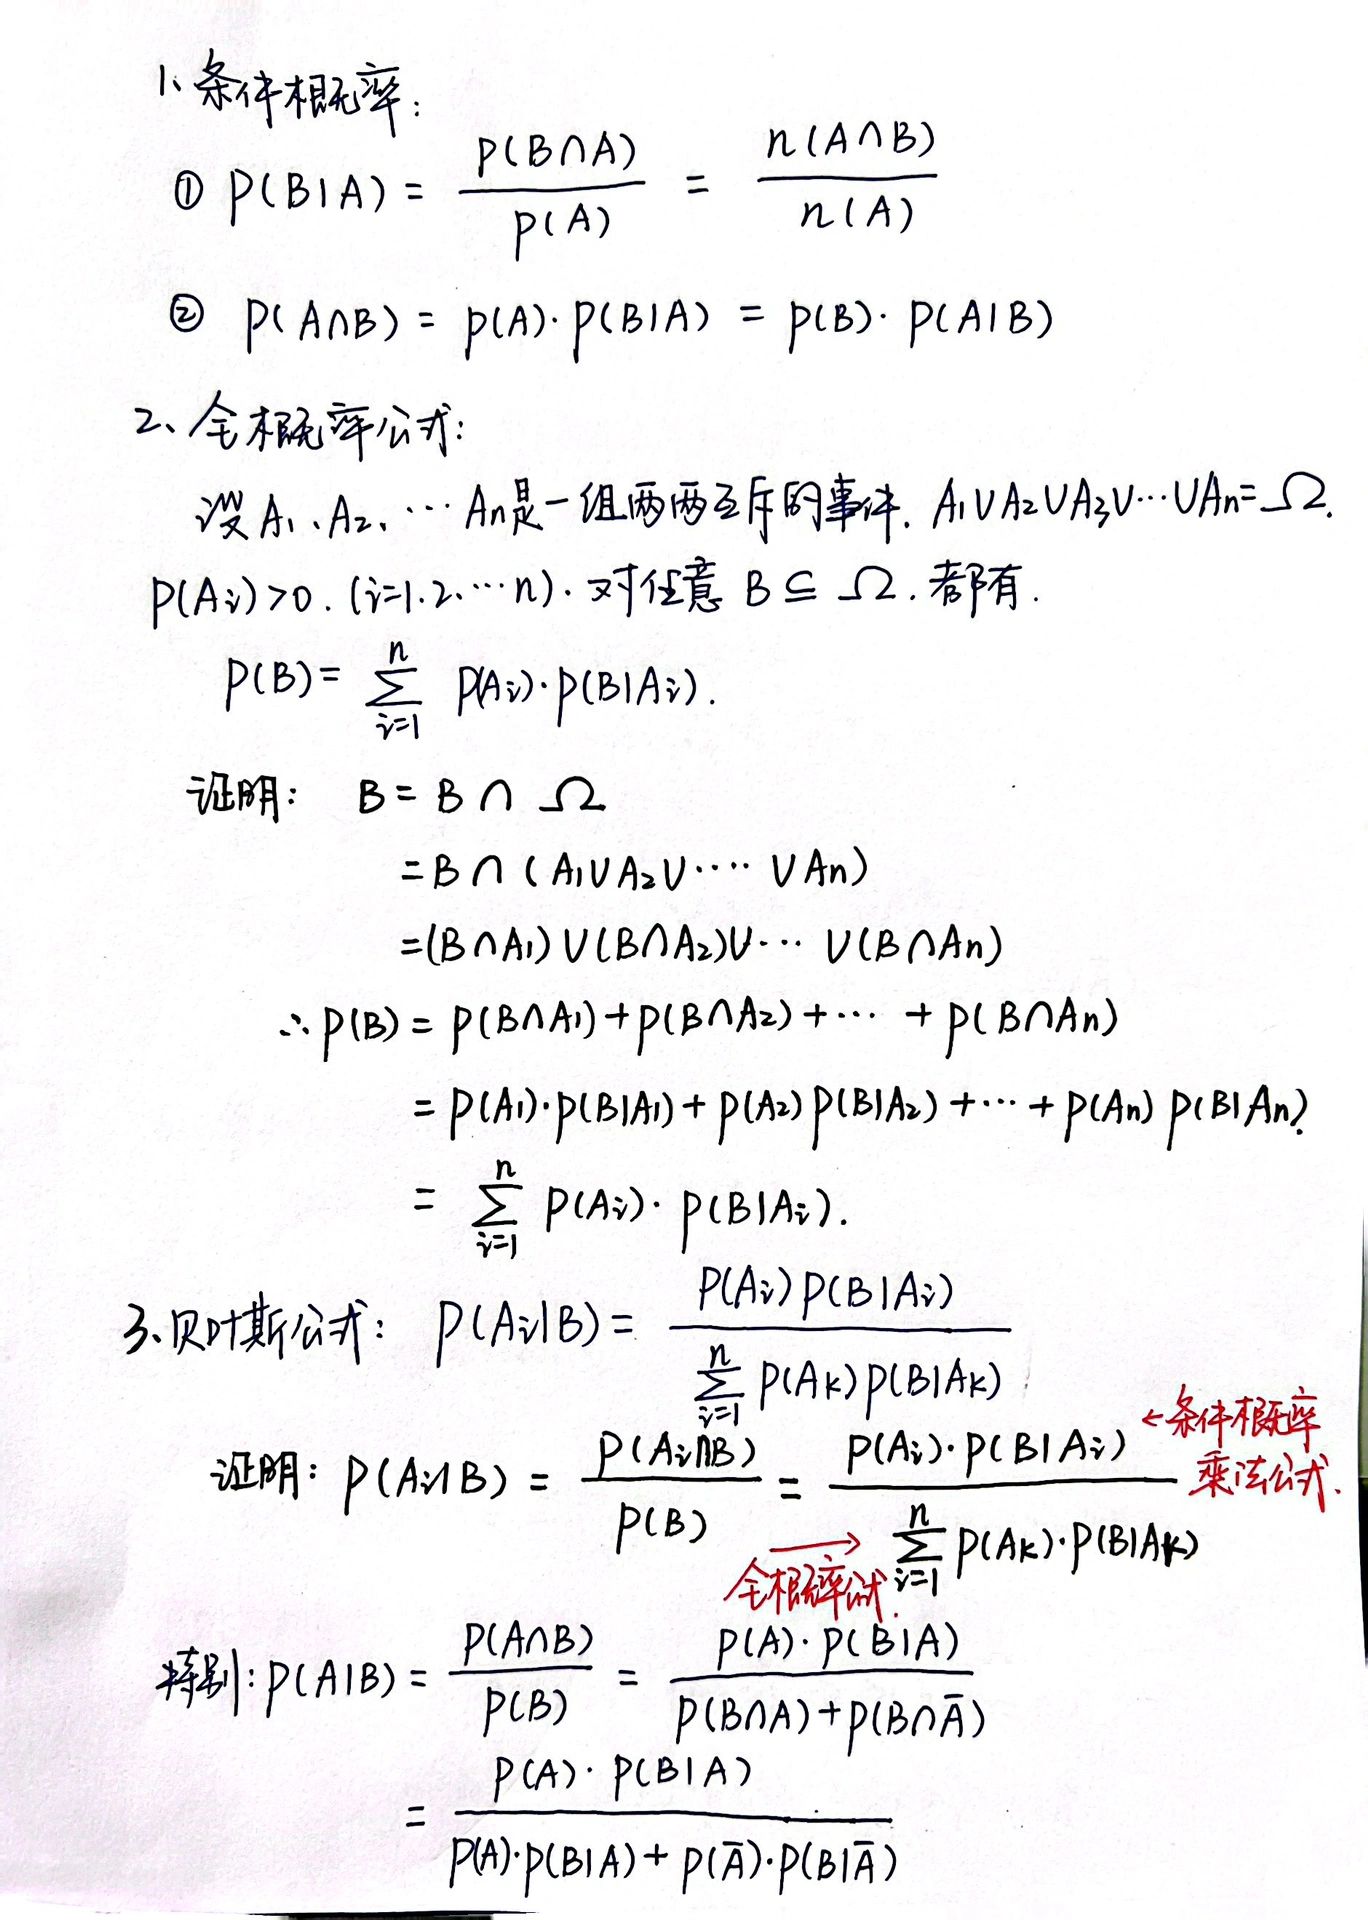 1、条件概率:
① P(B|A) = P(B∩A)/P(A) = n(A∩B)/n(A)
② P(A∩B) = P(A)·P(B|A) = P(B)·P(A|B)
2、全概率公式:
设A₁、A₂、…An是一组两两互斥的事件. A₁∪A₂∪A₃∪…∪An=Ω.
P(Ai)>0. (i=1.2.…n). 对任意 B⊆Ω. 都有.
P(B)= ∑_{i=1}^{n} P(Ai)·P(B|Ai).
证明: B = B∩Ω
=B∩(A₁∪A₂∪····∪An)
=(B∩A₁)∪(B∩A₂)∪…∪(B∩An)
∴P(B) = P(B∩A₁)+P(B∩A₂)+…+P(B∩An)
= P(A₁)·P(B|A₁)+P(A₂)P(B|A₂)+…+P(An)P(B|An).
= ∑_{i=1}^{n} P(Ai)·P(B|Ai).
3、贝叶斯公式: P(Ai|B) = P(Ai)P(B|Ai)/∑_{i=1}^{n} P(Ak)P(B|Ak)
证明: P(Ai|B) = P(Ai∩B)/P(B) = P(Ai)·P(B|Ai)/∑_{i=1}^{n} P(Ak)·P(B|Ak)
←条件概率
乘法公式.
→
全概率公式.
特别: P(A|B) = P(A∩B)/P(B) = P(A)·P(B|A)/P(B∩A)+P(B∩Ā)
= P(A)·P(B|A)/P(A)·P(B|A)+P(Ā)·P(B|Ā)